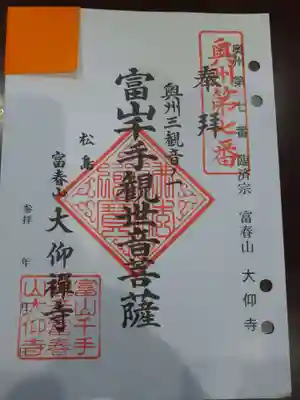 奥州第七番 臨済宗 富春山 大仰寺
奥州第七番
奉拝
奥州三観音ノ一
富山千手観世音菩薩
松島
富春山 大仰禅寺
参拝 年 月
富山千手
富春
山大仰寺